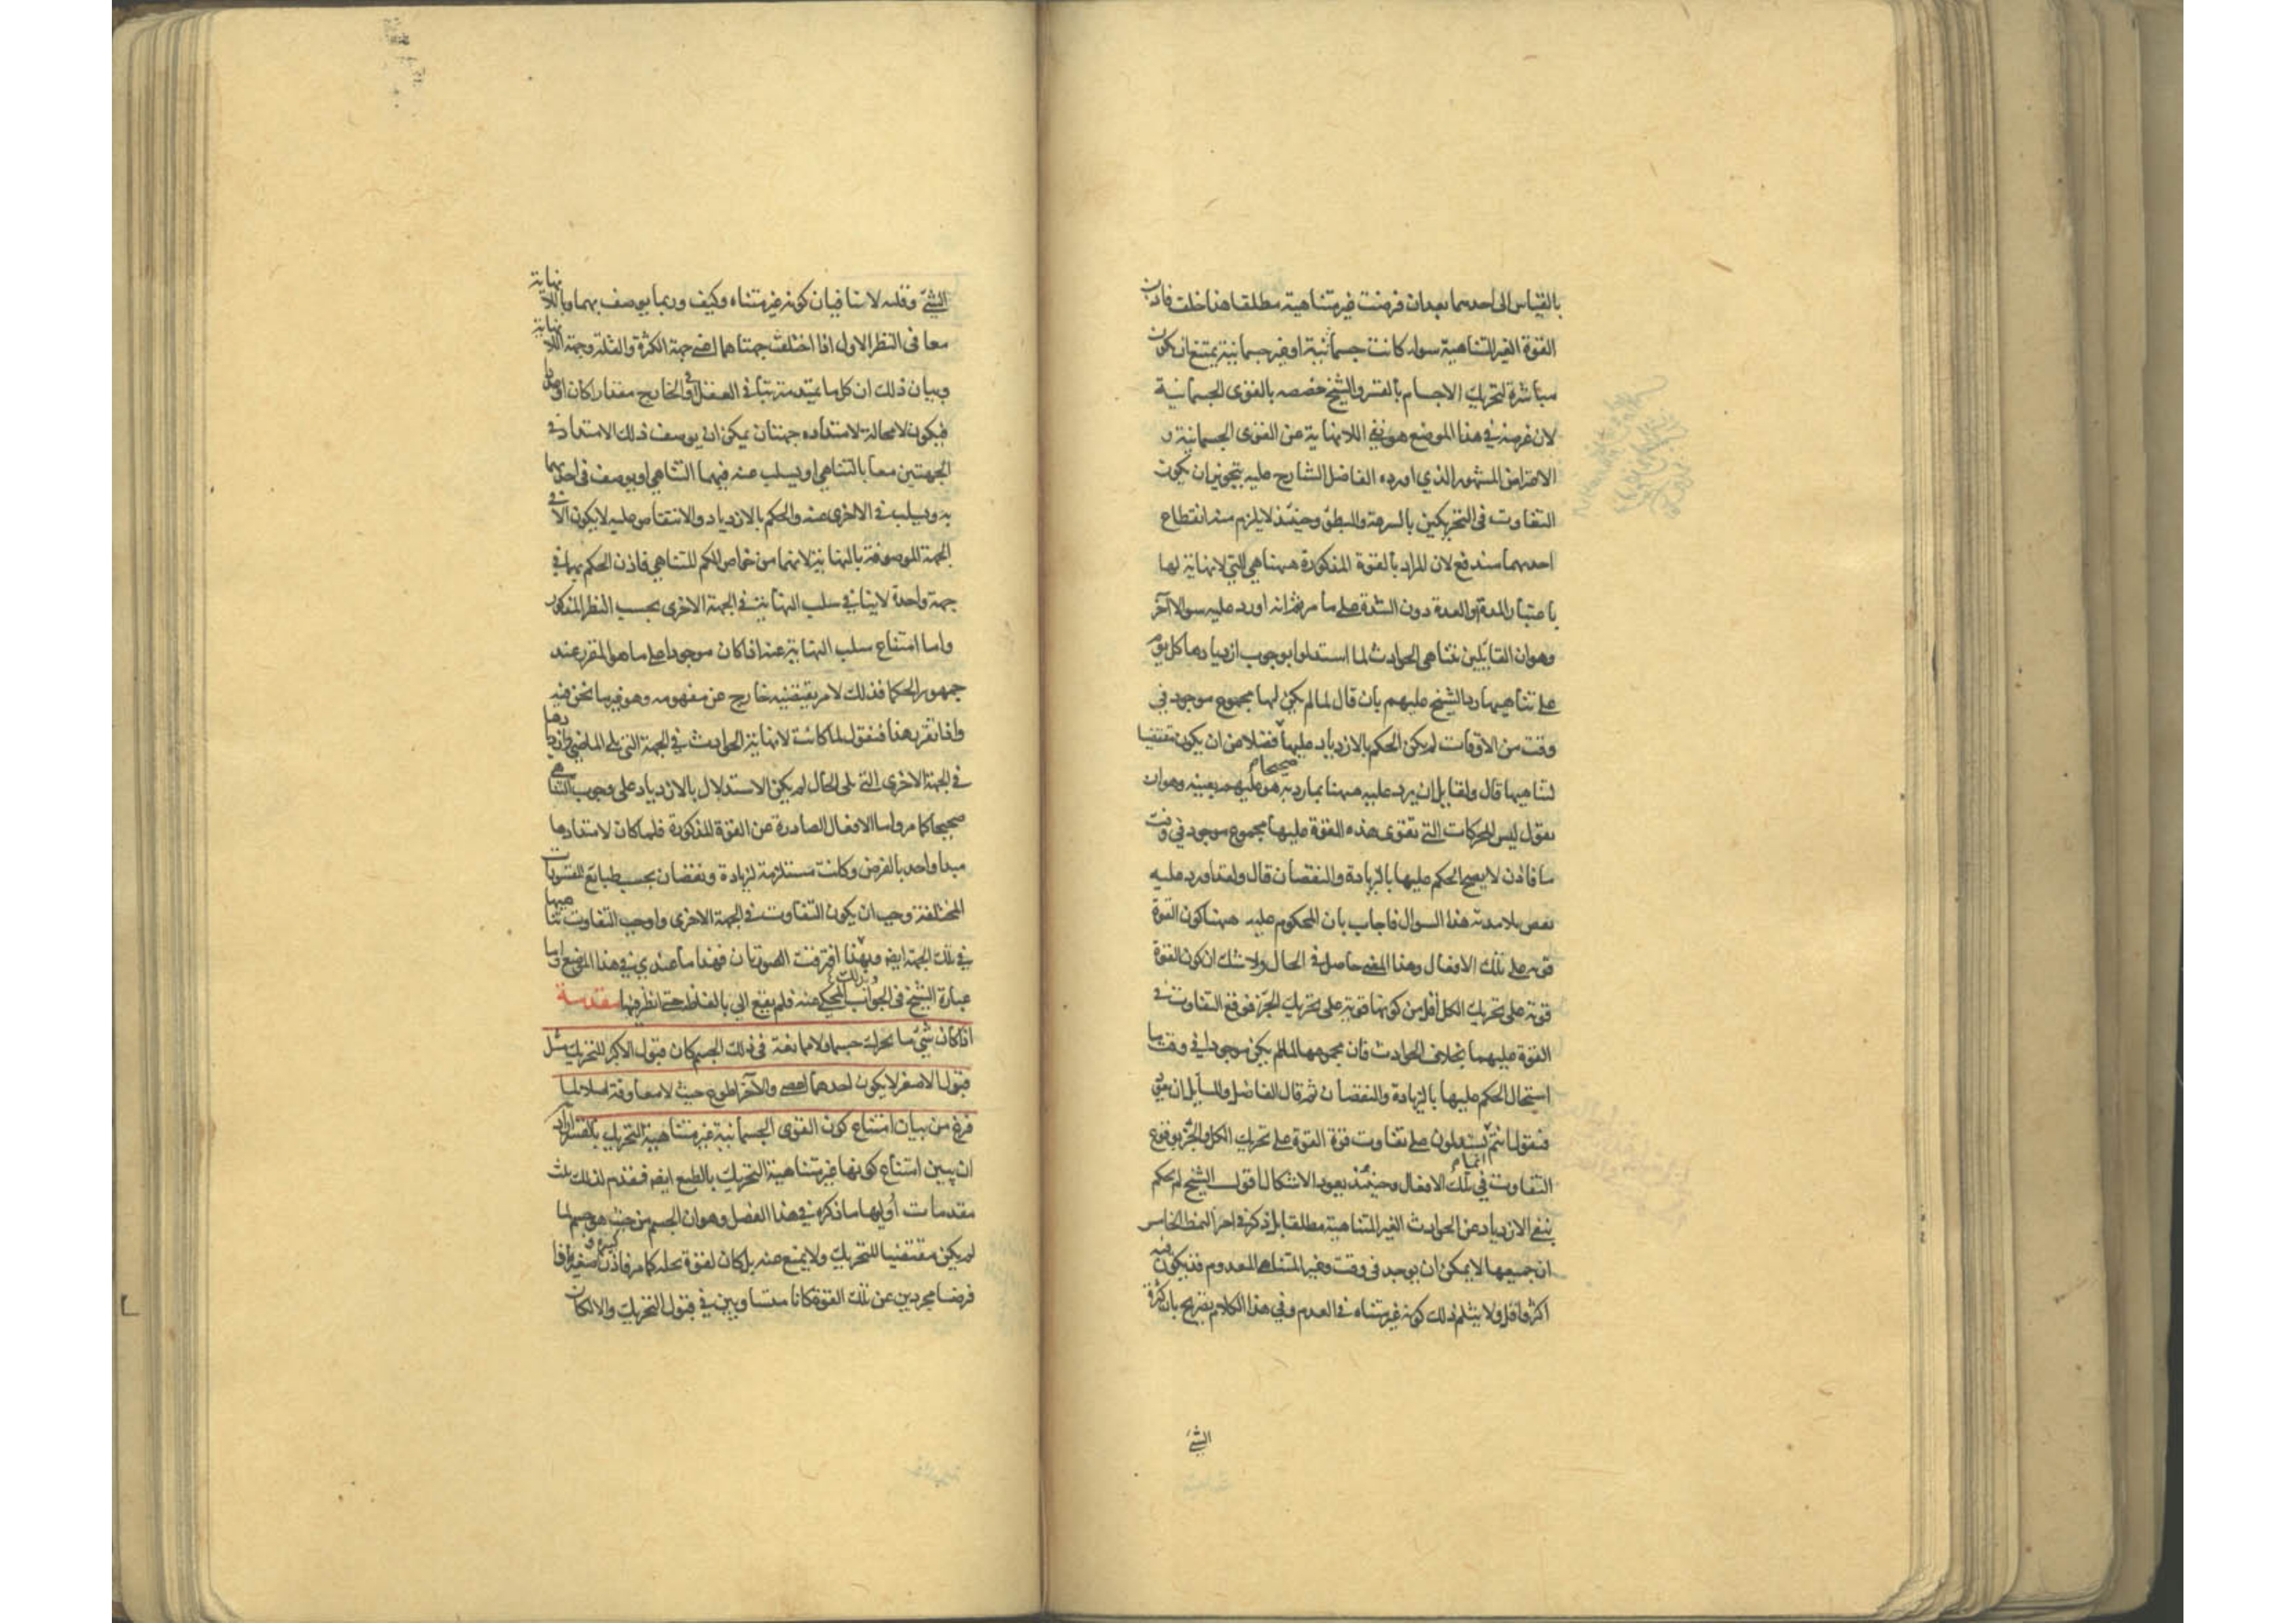 بالقياس الى احدهما بعد ان فرضت غير متناهية مطلقا هذا خلف فاذن
القوة الغير المتناهية سواء كانت جسمانية او غير جسمانية يمتنع ان يكون
مباشرة لتحريك الاجسام بالقسر والشيخ خصصه بالقوى الجسمانية
لان غرضه في هذا الموضع هو نفي اللانهاية عن القوى الجسمانية و
الاعتراض المشهور الذي اورده الفاضل الشارح عليه بتجويز ان يكون
التفاوت فى التحريكين بالسرعة والبطؤ وحينئذ لا يلزم منه انقطاع
احدهما مندفع لان المراد بالقوة المذكورة ههنا هي التي لا نهاية لها
باعتبار المدة والعدة دون الشدة على ما مر ثم انه اورد عليه سوالا آخر
وهو ان القايلين بتناهى الحوادث لما استدلوا بوجوب ازديادها كل يوم
على تناهيها رد الشيخ عليهم بان قال لما لم يكن لها مجموع موجود في
وقت من الاوقات لم يكن الحكم بالازدياد عليها صحيحا فضلا من ان يكون مقتضيا
لتناهيها قال ولقايل ان يرد عليه ههنا بما رد به هو عليهم بعينه وهو ان
يقول ليس للحركات التي تقوى هذه القوة عليها مجموع موجود في وقت
ما فاذن لا يصح الحكم عليها بالزيادة والنقصان قال ولقد اورد عليه
بعض تلامذته هذا السوال فاجاب بان المحكوم عليه ههنا كون القوة
قوية على تلك الافعال وهذا المعنى حاصل فى الحال ولا شك ان كون القوة
قوية على تحريك الكل اقل من كونها قوية على تحريك الجزء فوقع التفاوت فى
القوة عليهما بخلاف الحوادث فان مجموعها لما لم يكن موجودا في وقت ما
استحال الحكم عليها بالزيادة والنقصان ثم قال الفاضل وللسايل ان يعود
فيقول انتم انما تستدلون على تفاوت قوة القوة على تحريك الكل والجزء بوقوع
التفاوت في تلك الافعال وحينئذ يعود الاشكال اقول الشيخ لم يحكم
بنفى الازدياد عن الحوادث الغير المتناهية مطلقا بل ذكر في اخر النمط الخامس
ان جميعها لا يمكن ان يوجد فى وقت وغير المتناهى المعدوم قد يكون فيه
اكثر واقل ولا يثلم ذلك كونه غير متناه فى العدم وفي هذا الكلام تصريح بان كثرة
الشئ
الشئ وقلته لا ينافيان كونه غير متناه وكيف وربما يوصف بهما وباللانهاية
معا فى النظر الاول اذا اختلفت جهتاهما اعنى جهة الكثرة والقلة وجهة اللانهاية
وبيان ذلك ان كل ما يمتد مترتبا فى العقل او فى الخارج مقدارا كان او عددا
فيكون لا محالة لامتداده جهتان يمكن ان يوصف ذلك الامتداد فى
الجهتين معا بالتناهي او يسلب عنه فيهما التناهي او يوصف فى احدهما
به ويسلب فى الاخرى عنه والحكم بالازدياد والانتقاص عليه لا يكون الا فى
الجهة الموصوفة بالنهاية لانهما من خواص الكم المتناهي فاذن الحكم بهما في
جهة واحدة لا ينافي سلب النهاية في الجهة الاخرى بحسب النظر المذكور
واما امتناع سلب النهاية عنه اذا كان موجودا على ما هو المقرر عند
جمهور الحكما فذلك لامر يقتضيه خارج عن مفهومه وهو غير ما نحن فيه
واذا تقرر هذا فنقول لما كانت لا نهاية الحوادث في الجهة التي تلى الماضي وازديادها
فى الجهة الاخرى التي تلى الحال لم يكن الاستدلال بالازدياد على وجوب التناهي
صحيحا كما مر واما الافعال الصادرة عن القوة المذكورة فلما كان لامتدادها
مبدا واحد بالفرض وكانت مستلزمة لزيادة ونقصان بحسب طبائع المقسورات
المختلفة وجب ان يكون التفاوت في الجهة الاخرى واوجب التفاوت تناهيها
في تلك الجهة ايضه وبهذا افترقت الصورتان فهذا ما عندي في هذا الموضع واما
عبارة الشيخ فى الجواب المحكى عنه فلم يقع الي بالفاظه حتى انظر فيها مقدمة
اذا كان شئ ما يحرك جسما ولا ممانعة فى ذلك الجسم كان قبول الاكبر للتحريك مثل
قبول الاصغر لا يكون احدهما اعصى والآخر اطوع حيث لا معاوقة اصلا لما
فرغ من بيان امتناع كون القوى الجسمانية غير متناهية التحريك بالقسر اراد
ان يبين امتناع كونها غير متناهية التحريك بالطبع ايضه فقدم لذلك ثلث
مقدمات اولها ما ذكره في هذا الفصل وهو ان الجسم من حيث هو جسم لما
لم يكن مقتضيا للتحريك ولا يمنع عنه بل كان لقوة تحله كما مر فاذن كبيره وصغيره اذا
فرضا مجردين عن تلك القوة كانا متساويين في قبول التحريك والا لكان